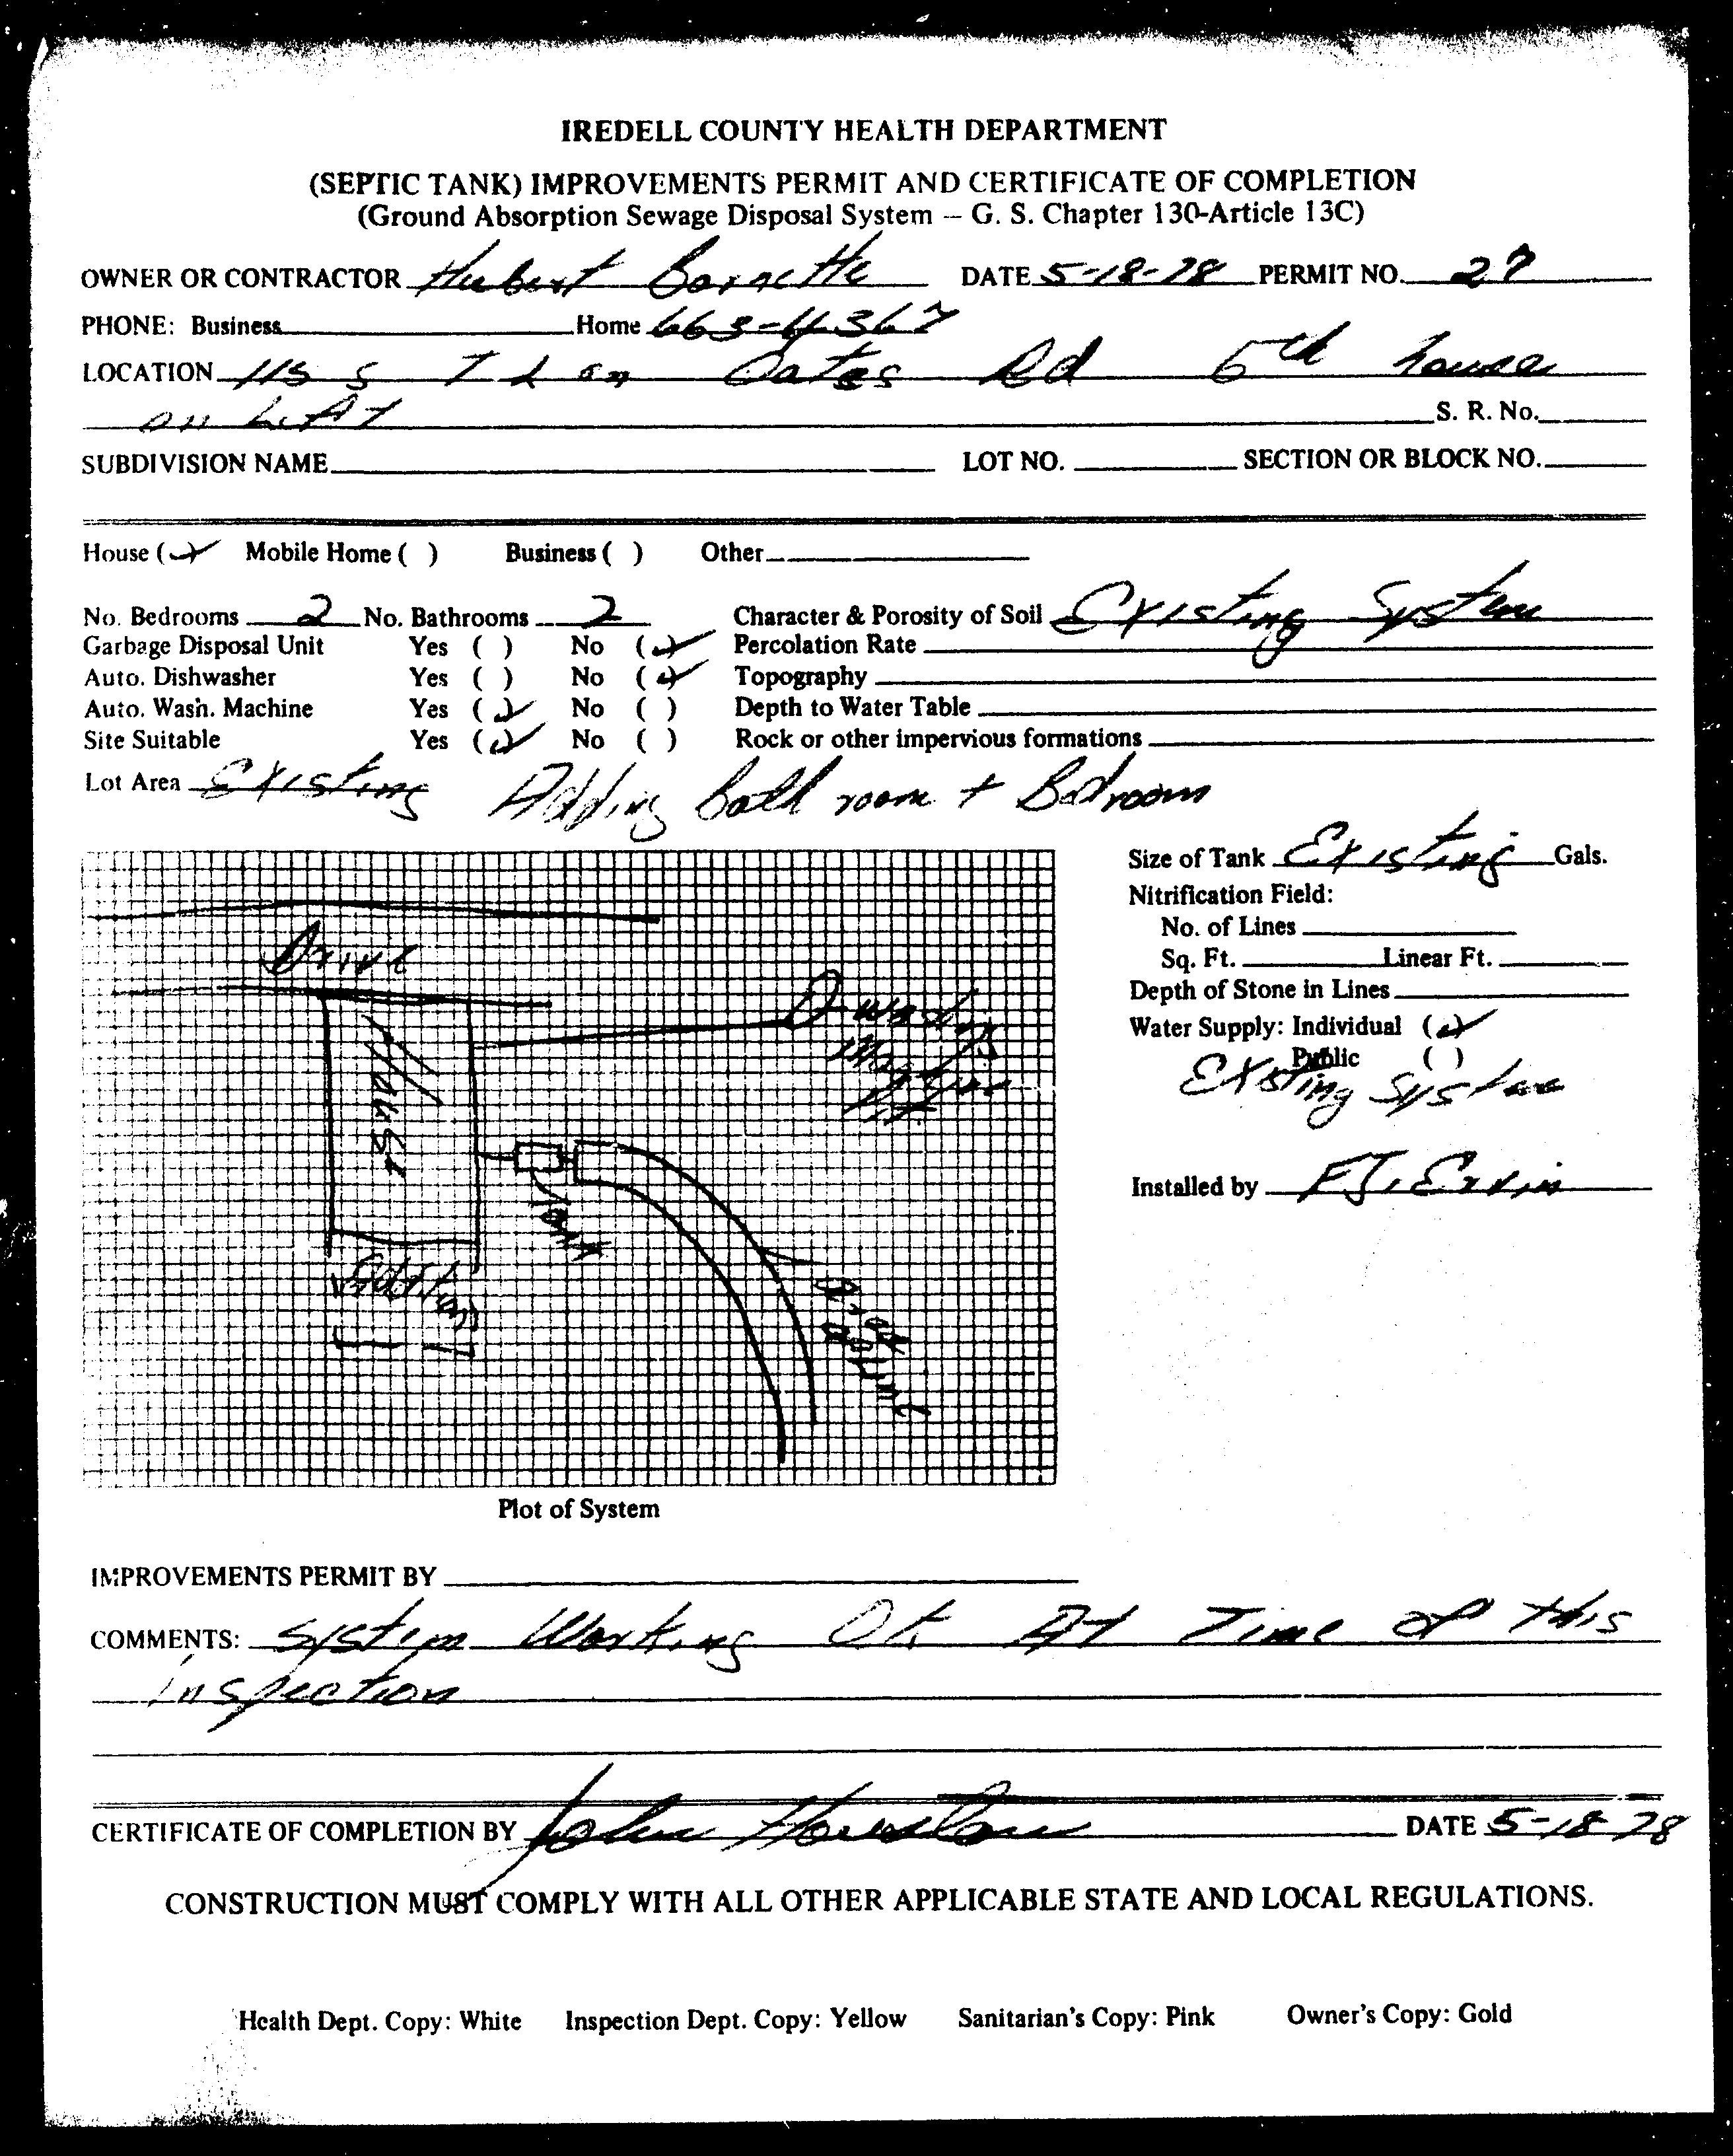 IREDELL COUNTY HEALTH DEPARTMENT
(SEPTIC TANK) IMPROVEMENTS PERMIT AND CERTIFICATE OF COMPLETION
(Ground Absorption Sewage Disposal System – G. S. Chapter 130-Article 13C)
OWNER OR CONTRACTOR Hubert Barnette DATE 5-18-78 PERMIT NO. 27
PHONE: Business Home 663-4367
LOCATION 115 S T L on Oates Rd 5th house
on Left S. R. No.
SUBDIVISION NAME LOT NO. SECTION OR BLOCK NO.
House (✓) Mobile Home ( ) Business ( ) Other
No. Bedrooms 2 No. Bathrooms 2 Character & Porosity of Soil Existing System
Garbage Disposal Unit Yes ( ) No (✓) Percolation Rate
Auto. Dishwasher Yes ( ) No (✓) Topography
Auto. Wash. Machine Yes (✓) No ( ) Depth to Water Table
Site Suitable Yes (✓) No ( ) Rock or other impervious formations
Lot Area Existing Adding bath room + Bedroom
Size of Tank Existing Gals.
Nitrification Field:
No. of Lines
Sq. Ft. Linear Ft.
Depth of Stone in Lines
Water Supply: Individual (✓)
Public ( )
Existing System
Installed by F.J. Ervin
Drive
House
washing
Tank
Addition
Plot of System
IMPROVEMENTS PERMIT BY
COMMENTS: System Working Ok At Time of this
Inspection
CERTIFICATE OF COMPLETION BY John Houston DATE 5-18 78
CONSTRUCTION MUST COMPLY WITH ALL OTHER APPLICABLE STATE AND LOCAL REGULATIONS.
Health Dept. Copy: White Inspection Dept. Copy: Yellow Sanitarian's Copy: Pink Owner's Copy: Gold